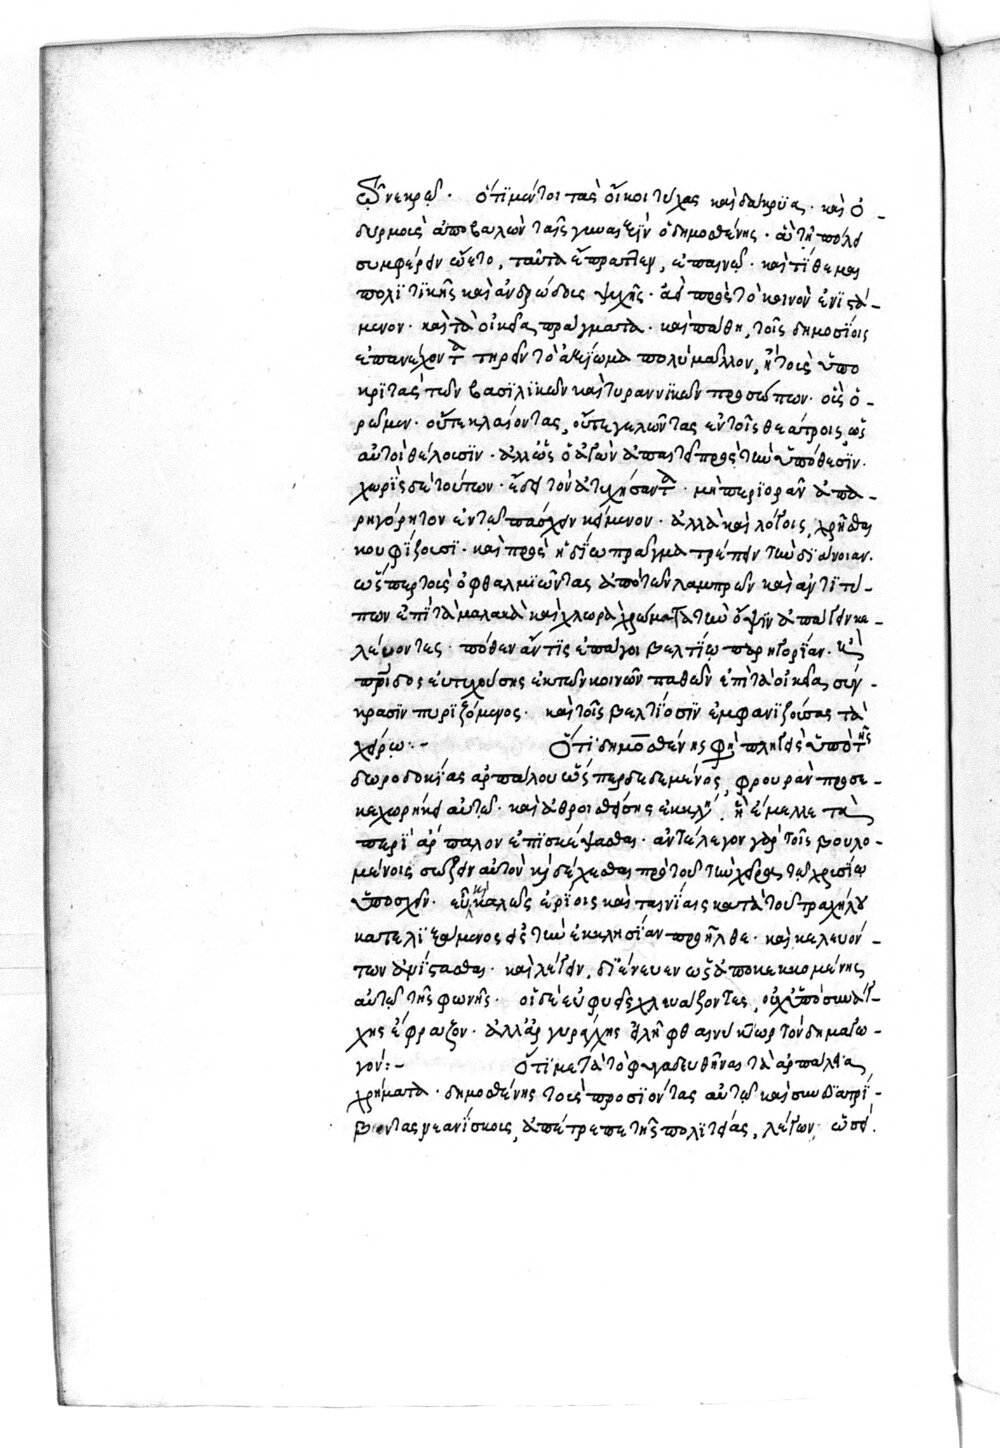 τῶν νεκρῶν. ὅτι μέντοι τὰς οἴκοι τύχας καὶ δάκρυα. καὶ ὀ-
δυρμοὺς ἀποβαλὼν ταῖς γυναιξὶν ὁ δημοσθένης. ἃ τῇ πόλει
συμφέρειν ᾤετο, ταῦτα ἔπραττεν, ἐπαινῶ. καὶ τίθεμαι
πολιτικῆς καὶ ἀνδρώδους ψυχῆς. ἀεὶ πρὸς τὸ κοινὸν ἐνιστά-
μενον. καὶ τὰ οἰκεῖα πράγματα. καὶ πάθη, τοῖς δημοσίοις
ἐπανέχοντα τηρεῖν τὸ ἀξίωμα πολὺ μᾶλλον, ἢ τοὺς ὑπο
κριτὰς τῶν βασιλικῶν καὶ τυραννικῶν προσώπων. οὓς ὁ-
ρῶμεν. οὔτε κλαίοντας, οὔτε γελῶντας ἐν τοῖς θεάτροις ὡς
αὐτοὶ θέλουσιν. ἀλλ' ὡς ὁ ἀγὼν ἀπαιτεῖ πρὸς τὴν ὑπόθεσιν.
χωρὶς δὲ τούτων. εἰ δεῖ τὸν ἀτυχήσαντα. μὴ περιορᾶν ἀπα-
ρηγόρητον ἐν τῷ πάσχειν κείμενον. ἀλλὰ καὶ λόγοις χρῆσθαι
κουφίζουσι. καὶ πρὸς ἡδίω πράγματα τρέπειν τὴν διάνοιαν.
ὥσπερ τοὺς ὀφθαλμιῶντας ἀπὸ τῶν λαμπρῶν καὶ ἀντιτύ-
πων ἐπὶ τὰ μαλακὰ καὶ χλωρὰ χρώματα τὴν ὄψιν ἀπάγειν κε-
λεύοντες. πόθεν ἄν τις ἐπάγοι βελτίω παρηγορίαν. καὶ
πρίδος εὐτυχούσης ἐκ τῶν κοινῶν παθῶν ἐπὶ τὰ οἰκεῖα σύγ-
κρασιν ποριζόμενος. καὶ τοῖς βελτίοσιν ἐμφανιζούσας τὰ
χείρω:- Ὅτι δημοσθένης φησὶ πληγεὶς ὑπὸ τῆς
δωροδοκίας ἁρπάλου ὥσπερ δεδεμένος, φρουρὰν προσε-
κεχωρήκει αὐτῷ. καὶ ἀθροισθείσης ἐκκλη. ἣ ἔμελλε τὰ
περὶ ἅρπαλον ἐπισκέψασθαι. ἀντέλεγον γὰρ τοῖς βουλο-
μένοις σώζειν αὐτὸν καὶ δέχεσθαι πρὸ τοῦ τὴν χεῖρας τῷ χρυσίω
ὑποσχεῖν. εὖ καὶ καλῶς ἐρίοις καὶ ταινίαις κατὰ τοῦ τραχήλου
κατελιξάμενος εἰς τὴν ἐκκλησίαν προῆλθε. καὶ κελευόν-
των ἀνίστασθαι. καὶ λέγειν, διένευεν ὡς ἀποκεκομμένης
αὐτῷ τῆς φωνῆς. οἱ δὲ εὐφυεῖς χλευάζοντες, οὐχ ὑπὸ συνάγ-
χης ἔφραζον. ἀλλ' ἀργυράγχης εἰλῆφθαι νύκτωρ τὸν δημαγω-
γόν:- Ὅτι μετὰ τὸ φυγαδευθῆναι τὰ ἁρπάλεια
χρήματα. δημοσθένης τοὺς προσιόντας αὐτῷ καὶ συνδιατρί-
βοντας νεανίσκους, ἀπέτρεπε τῆς πολιτείας, λέγων, ὡς εἰ.